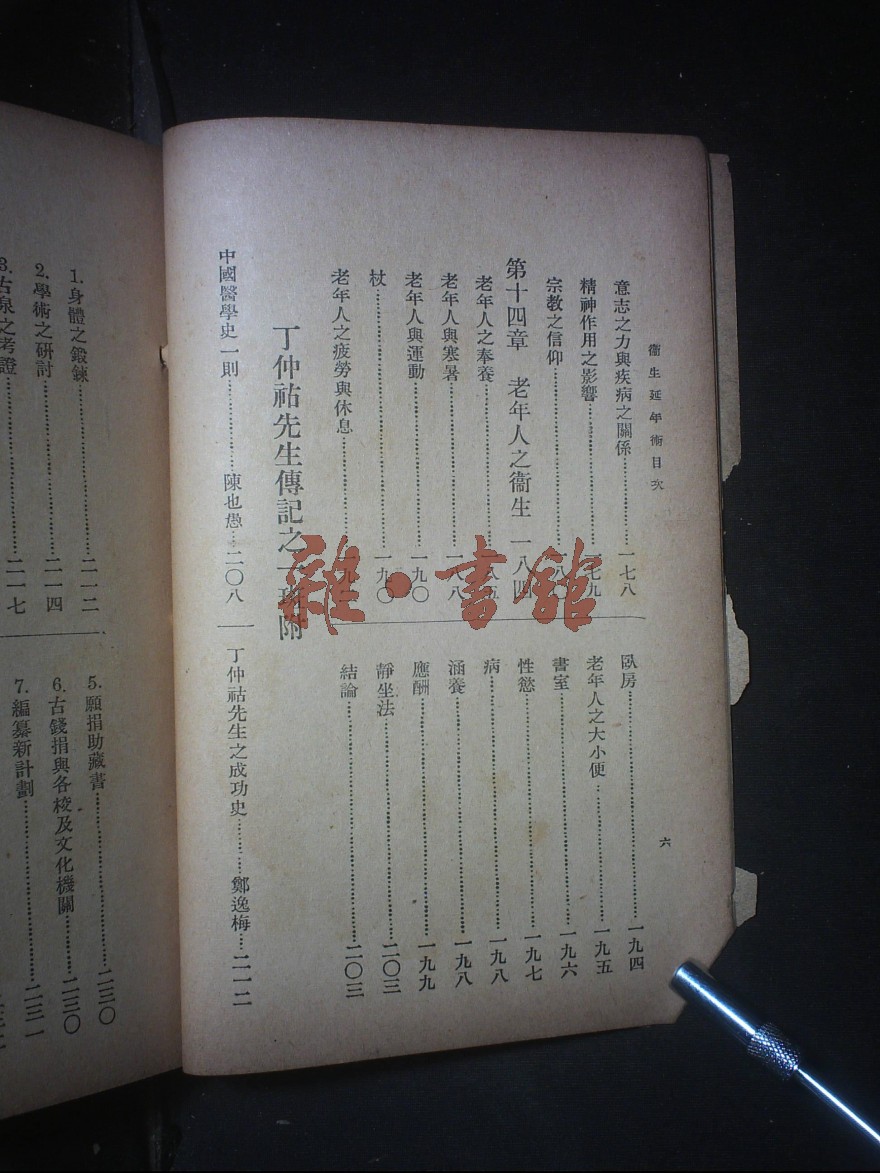 衞生延年術目次
六
意志之力與疾病之關係……一七八
精神作用之影響……一七九
宗教之信仰……一八
第十四章　老年人之衞生　一八四
老年人之奉養……八五
老年人與寒暑……一八八
老年人與運動……一九〇
杖……一九〇
老年人之疲勞與休息……一九
臥房……一九四
老年人之大小便……一九五
書室……一九六
性慾……一九七
病……一九八
涵養……一九八
應酬……一九九
靜坐法……二〇三
結論……二〇三
丁仲祜先生傳記之一斑附
中國醫學史一則……陳也愚…二〇八
丁仲祜先生之成功史……鄭逸梅…二一二
1.身體之鍛鍊……二一二
2.學術之研討……二一四
3.古泉之考證……二一七
5.願捐助藏書……二三〇
6.古錢捐與各校及文化機關……二三〇
7.編纂新計劃……二三一
雜·書館